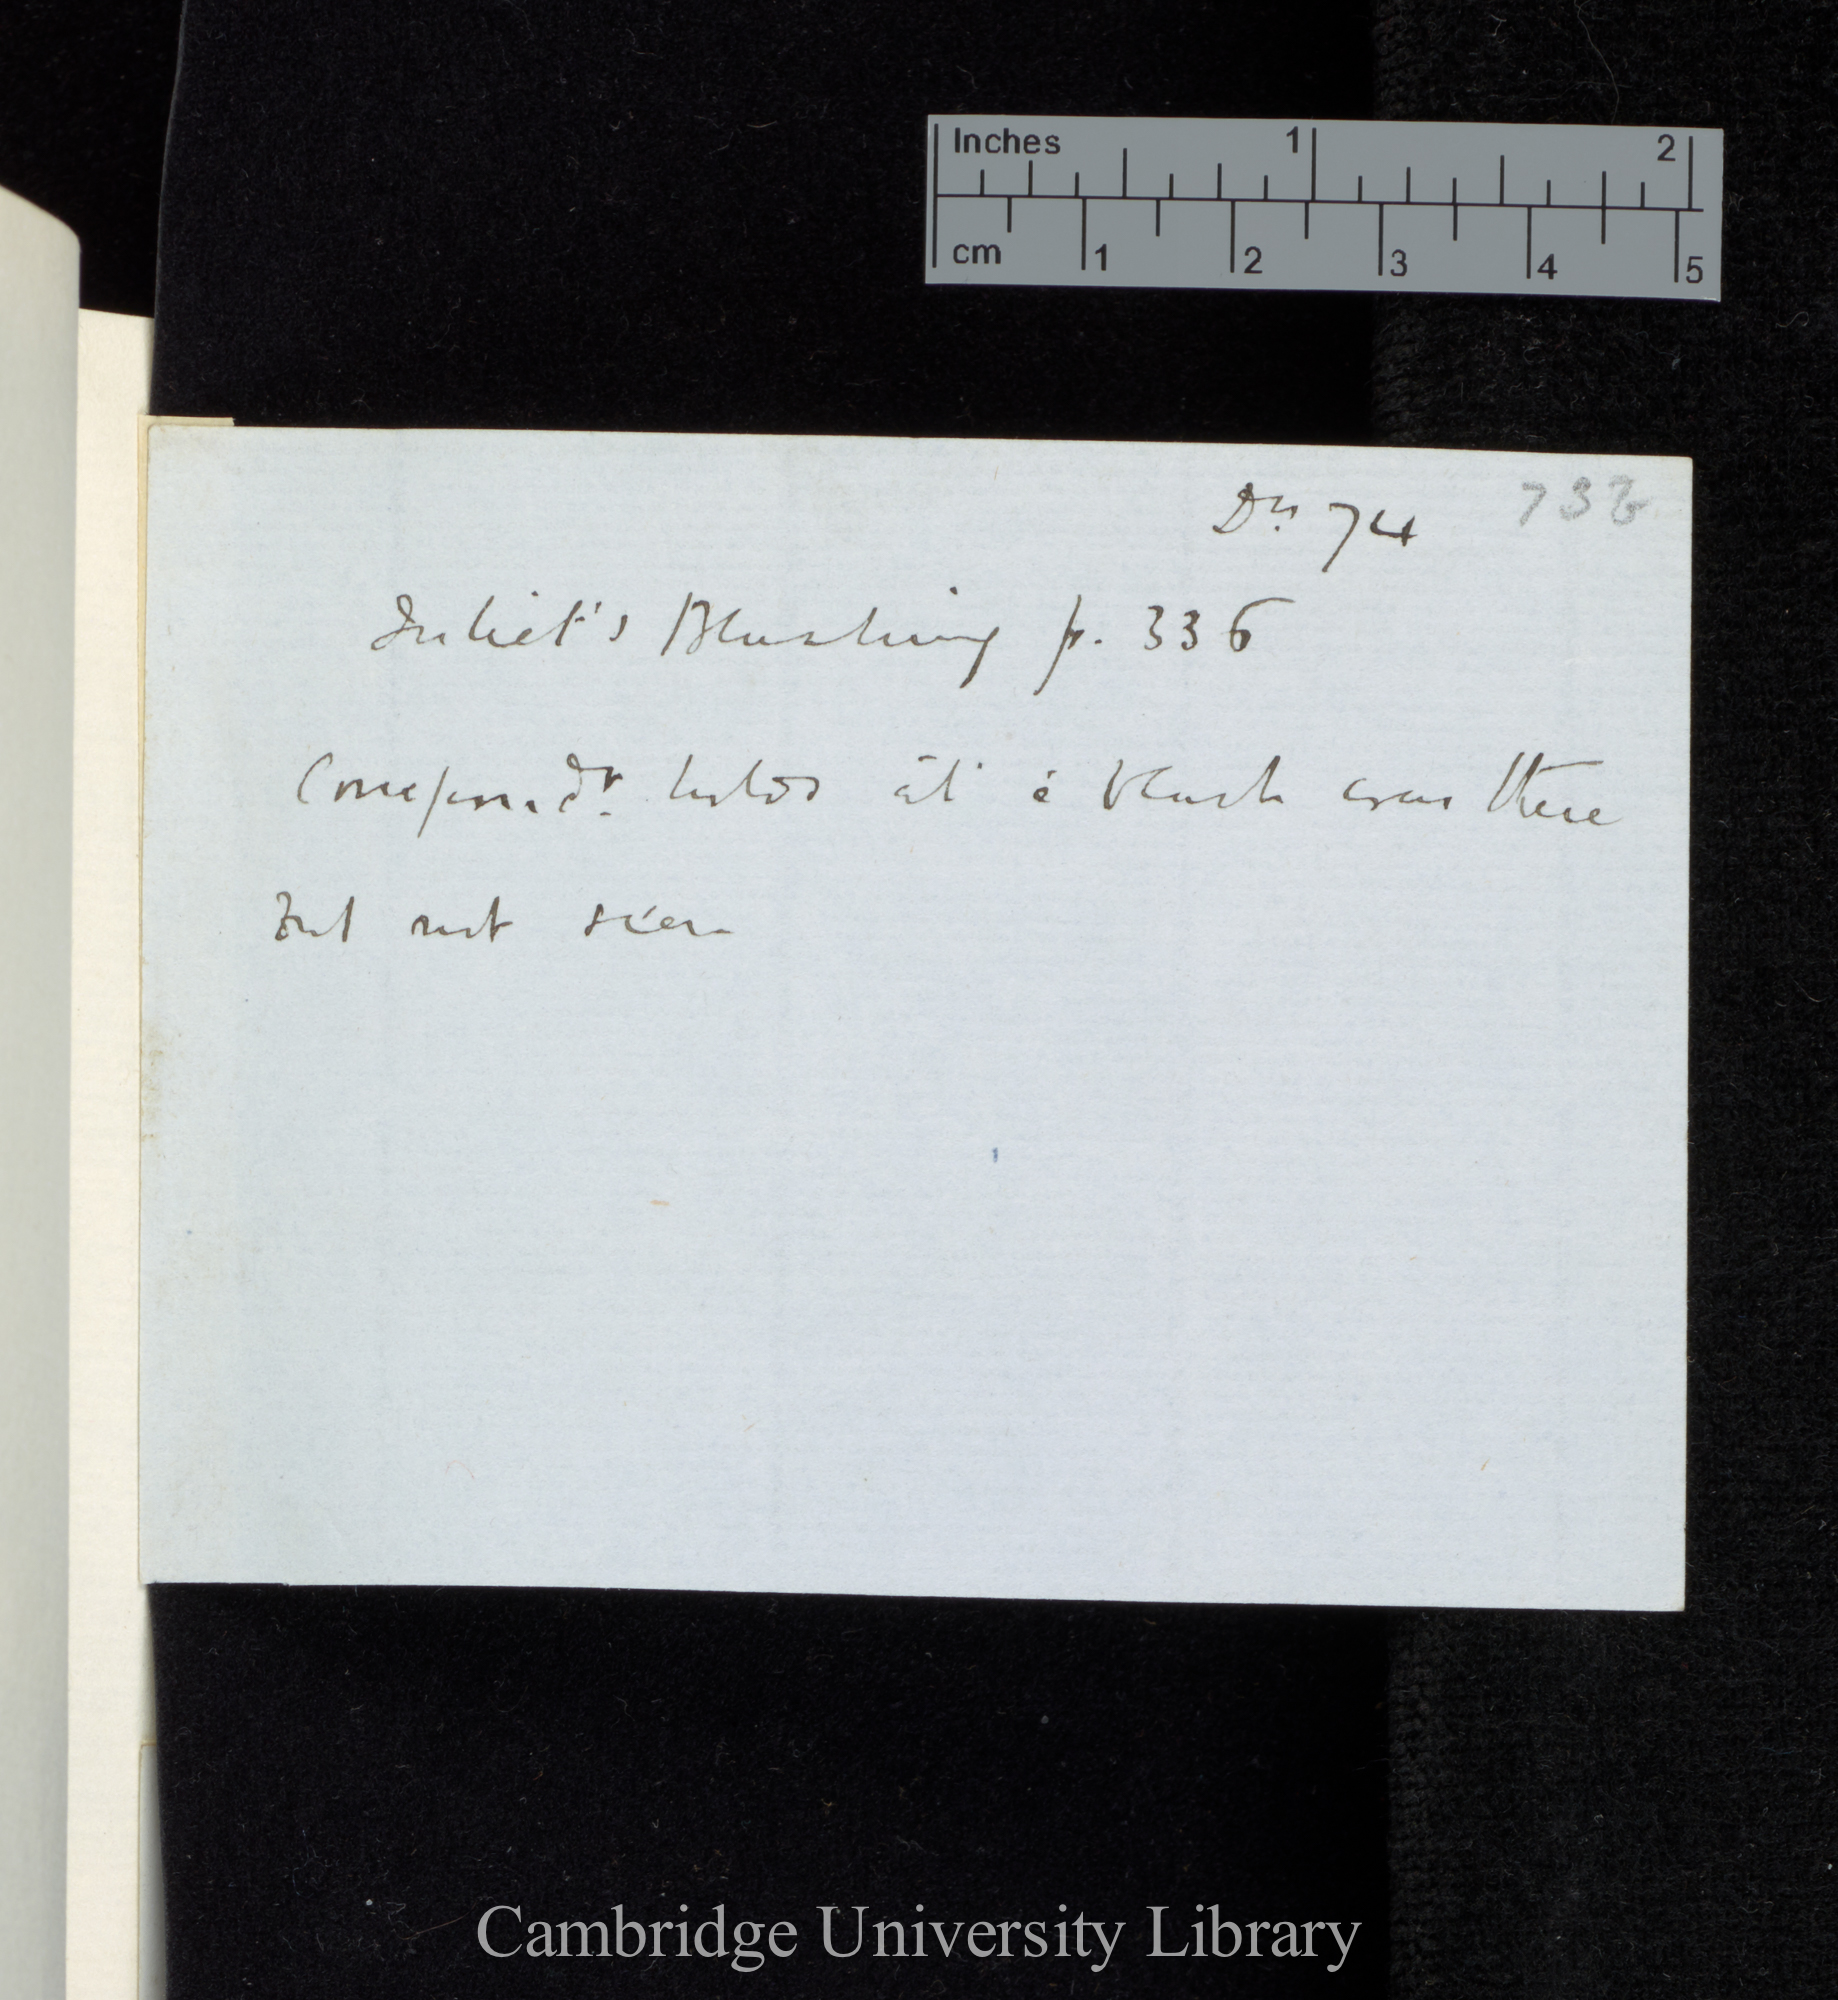 Inches 1 2
cm 1 2 3 4 5
Dr 74 73b
Juliet's Blushing p. 336
Correspondt. holds at a blush was there
but not seen
Cambridge University Library